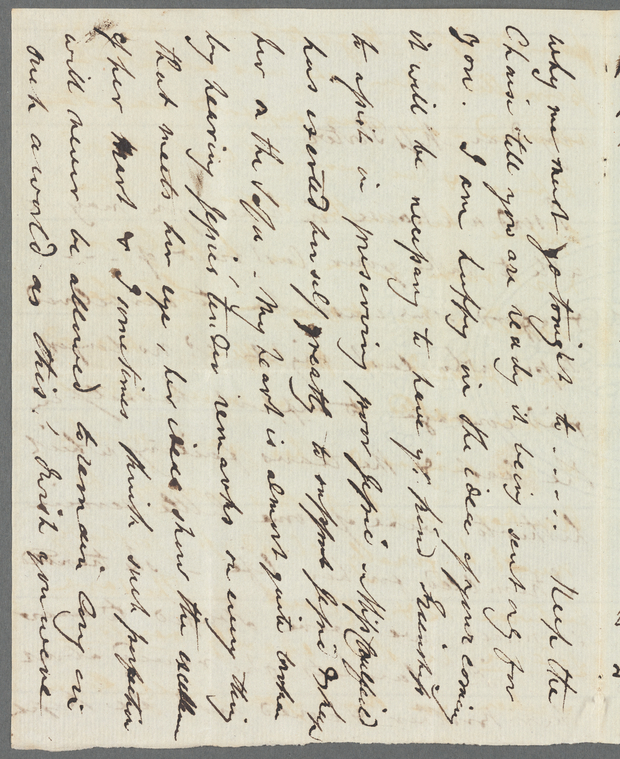 why we must go tonight to ..... Keep the
Chair till you are ready it being sent only for
you. I am happy in the idea of your coming
it will be necessary to have yr. kind Friendship
to assist in preserving poor Jessie - Miss Caulfield
has exerted herself greatly to support Jessie & keep
her on the Sofa. My heart is almost quite broken
by hearing Jessies' tender remarks on every thing
that meets her eye, her ideas show the excellen
of her Heart & I sometimes think such perfection
will never be allowed to remain long in
such a world as this! I wish you were